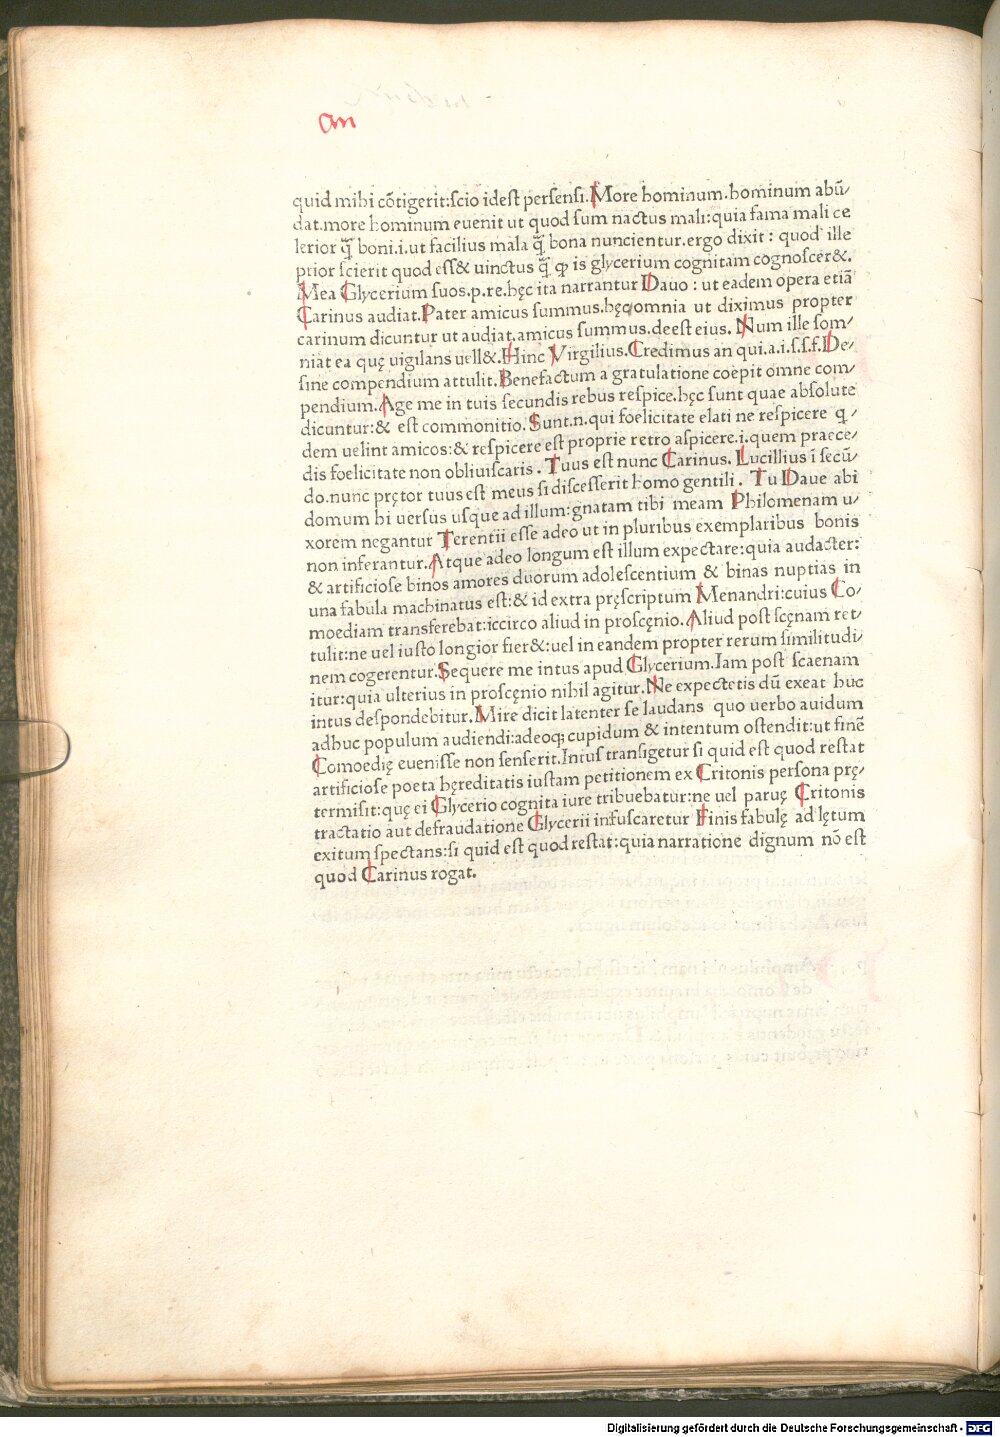 an
quid mihi cõtigerit:scio idest persensi.More hominum.hominum abũ/
dat.more hominum euenit ut quod sum nactus mali:quia fama mali ce
lerior q̃ boni.i.ut facilius mala q̃ bona nuncientur.ergo dixit : quod ille
prior scierit quod ess& uinctus q̃ ꝙ is glycerium cognitam cognoscer&.
Mea Glycerium suos.p.re.hęc ita narrantur Dauo : ut eadem opera etiã
Carinus audiat.Pater amicus summus.hęc omnia ut diximus propter
carinum dicuntur ut audiat.amicus summus.deest eius. Num ille som/
niat ea quę uigilans uell&.Hinc Virgilius.Credimus an qui.a.i.s.s.f.De/
sine compendium attulit.Benefactum a gratulatione coepit omne com/
pendium.Age me in tuis secundis rebus respice.hęc sunt quae absolute
dicuntur:& est commonitio.Sunt.n.qui foelicitate elati ne respicere q/
dem uelint amicos:& respicere est proprie retro aspicere.i.quem praece/
dis foelicitate non obliuiscaris . Tuus est nunc Carinus. Lucillius ĩ secũ/
do.nunc prętor tuus est meus si discesserit homo gentili . Tu Daue abi
domum hi uersus usque ad illum:gnatam tibi meam Philomenam u/
xorem negantur Terentii esse adeo ut in pluribus exemplaribus bonis
non inferantur.Atque adeo longum est illum expectare:quia audacter:
& artificiose binos amores duorum adolescentium & binas nuptias in
una fabula machinatus est:& id extra pręscriptum Menandri:cuius Co/
moediam transferebat:iccirco aliud in proscęnio.Aliud post scęnam ret/
tulit:ne uel iusto longior fier&:uel in eandem propter rerum similitudi/
nem cogerentur.Sequere me intus apud Glycerium.Iam post scaenam
itur:quia ulterius in proscęnio nihil agitur.Ne expectetis dũ exeat huc
intus despondebitur.Mire dicit latenter se laudans quo uerbo auidum
adhuc populum audiendi:adeoq; cupidum & intentum ostendit:ut finẽ
Comoedię euenisse non senserit.Intus transigetur si quid est quod restat
artificiose poeta hęreditatis iustam petitionem ex Critonis persona prę/
termisit:quę ei Glycerio cognita iure tribuebatur:ne uel paruę Critonis
tractatio aut defraudatione Glycerii infuscaretur Finis fabulę ad lętum
exitum spectans:si quid est quod restat:quia narratione dignum nõ est
quod Carinus rogat.
Digitalisierung gefördert durch die Deutsche Forschungsgemeinschaft - DFG